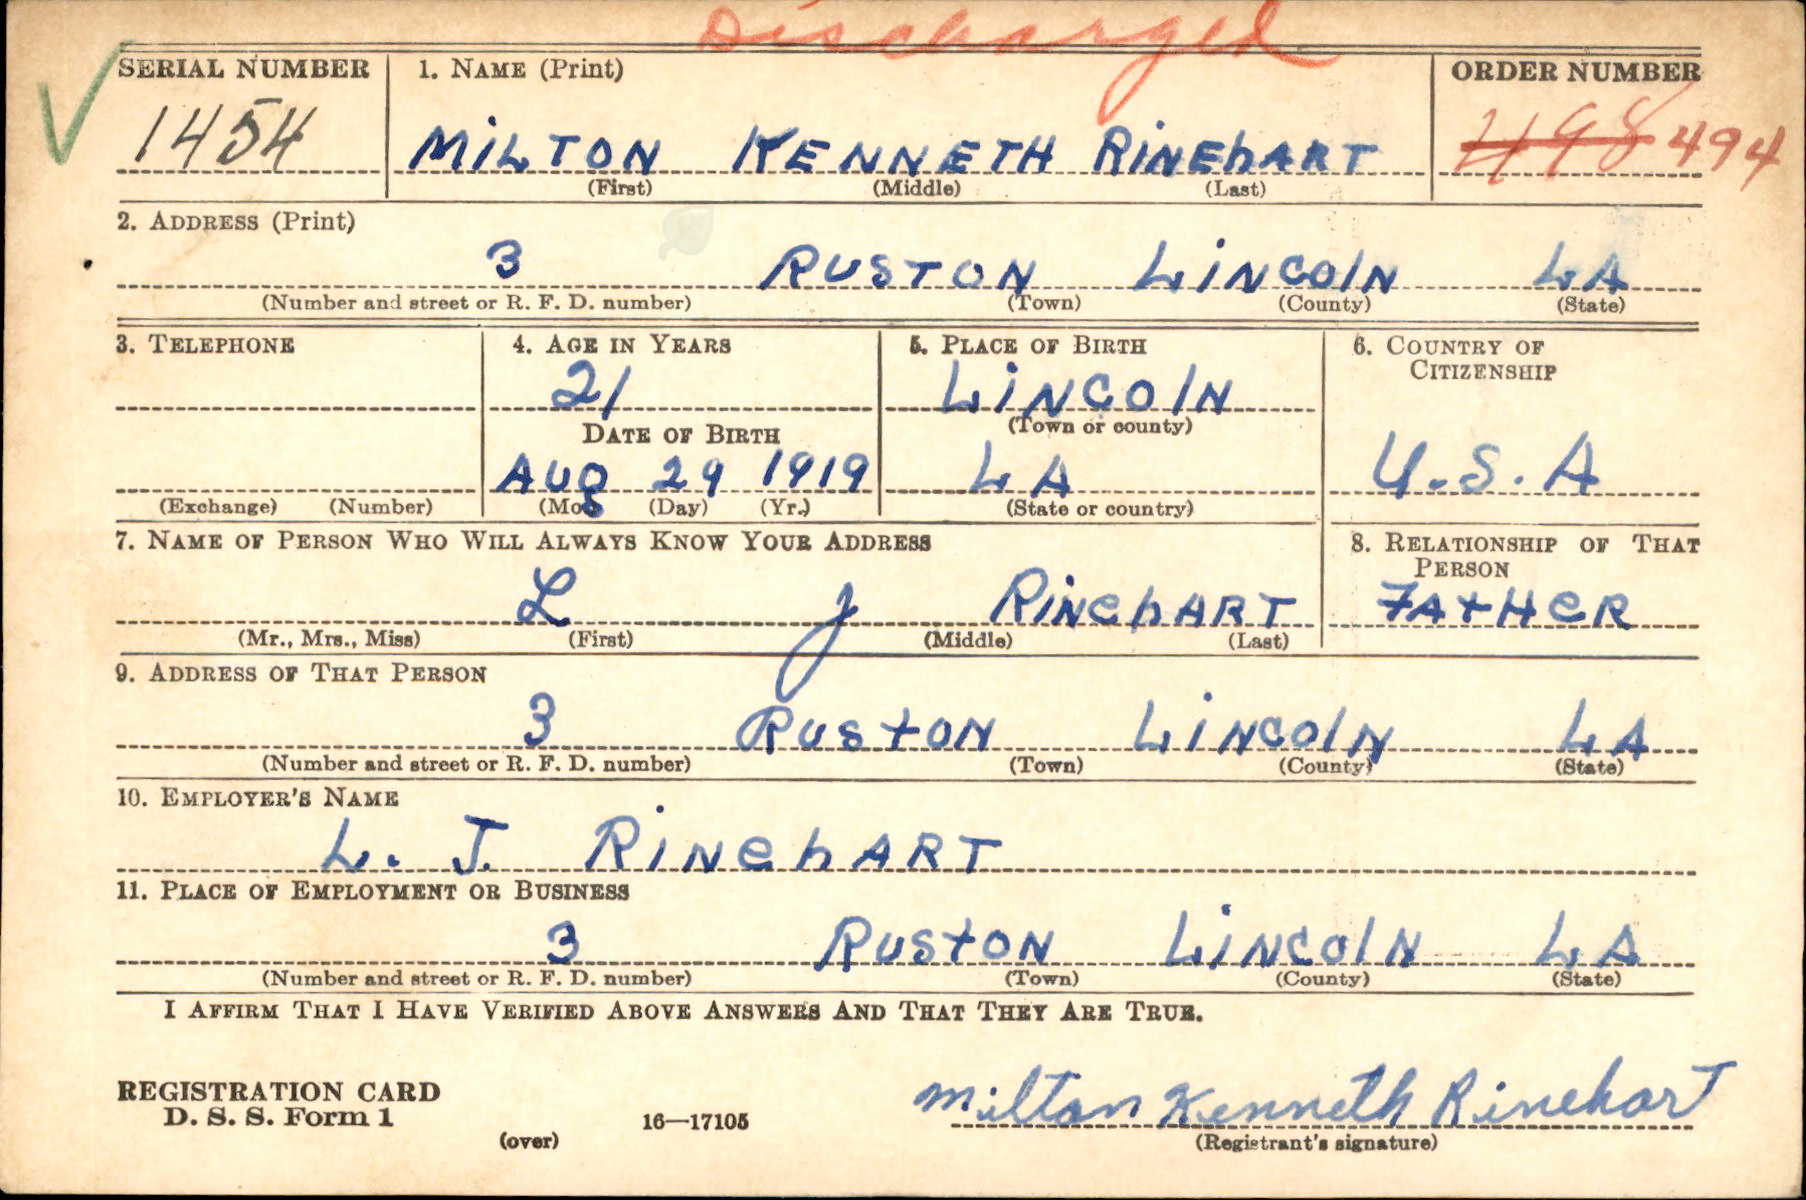 Discharged
SERIAL NUMBER 1. NAME (Print) ORDER NUMBER
1454 MILTON KENNETH RINEhART 498 494
(First) (Middle) (Last)
2. ADDRESS (Print)
3 RUSTON LINCOLN LA
(Number and street or R. F. D. number) (Town) (County) (State)
3. TELEPHONE 4. AGE IN YEARS 5. PLACE OF BIRTH 6. COUNTRY OF CITIZENSHIP
21 LINCOLN
DATE OF BIRTH (Town or county)
AUg 29 1919 LA U.S.A
(Exchange) (Number) (Mo.) (Day) (Yr.) (State or country)
7. NAME OF PERSON WHO WILL ALWAYS KNOW YOUR ADDRESS 8. RELATIONSHIP OF THAT PERSON
L J RINehART FATHeR
(Mr., Mrs., Miss) (First) (Middle) (Last)
9. ADDRESS OF THAT PERSON
3 RUSTON LINCOLN LA
(Number and street or R. F. D. number) (Town) (County) (State)
10. EMPLOYER'S NAME
L. J. RINehART
11. PLACE OF EMPLOYMENT OR BUSINESS
3 RUSTON LINCOLN LA
(Number and street or R. F. D. number) (Town) (County) (State)
I AFFIRM THAT I HAVE VERIFIED ABOVE ANSWERS AND THAT THEY ARE TRUE.
REGISTRATION CARD
D. S. S. Form 1 16—17105 Milton Kenneth Rinehart
(over) (Registrant's signature)